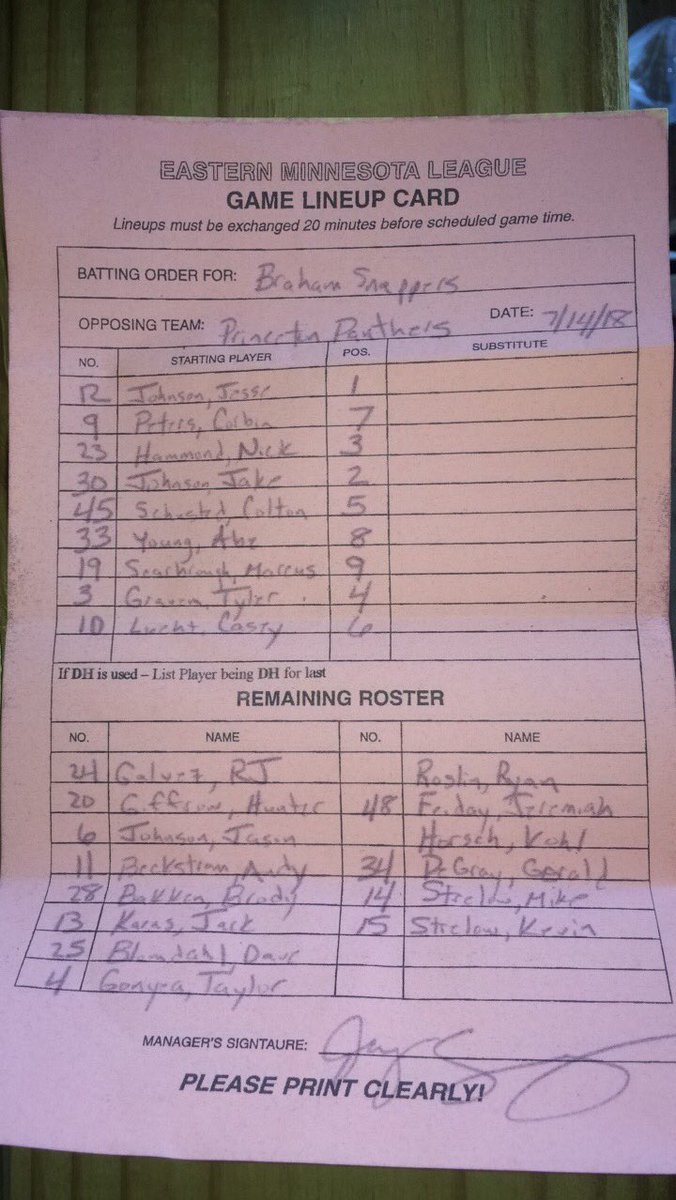 EASTERN MINNESOTA LEAGUE
GAME LINEUP CARD
Lineups must be exchanged 20 minutes before scheduled game time.
BATTING ORDER FOR: Braham Snappers
OPPOSING TEAM: Princeton Panthers DATE: 7/14/18
NO. STARTING PLAYER POS. SUBSTITUTE
12 Johnson, Jesse 1
9 Peters, Corbin 7
23 Hammond, Nick 3
30 Johnson, Jake 2
45 Colton 5
33 Young, Abe 8
19 Marcus 9
3 Tyler 4
10 Lucht, Casey 6
If DH is used – List Player being DH for last
REMAINING ROSTER
NO. NAME NO. NAME
24 Galvez, RJ Ryan
20 Hunter 48 Friday, Jeremiah
6 Johnson, Jason Horsch, Kohl
11 Beckstrom, Andy 34 DeGray, Gerald
28 Bakken, Brody 14 Strelow, Mike
13 Karas, Jack 15 Strelow, Kevin
25 Blomdahl, Dave
4 Gonyea, Taylor
MANAGER'S SIGNTAURE:
PLEASE PRINT CLEARLY!